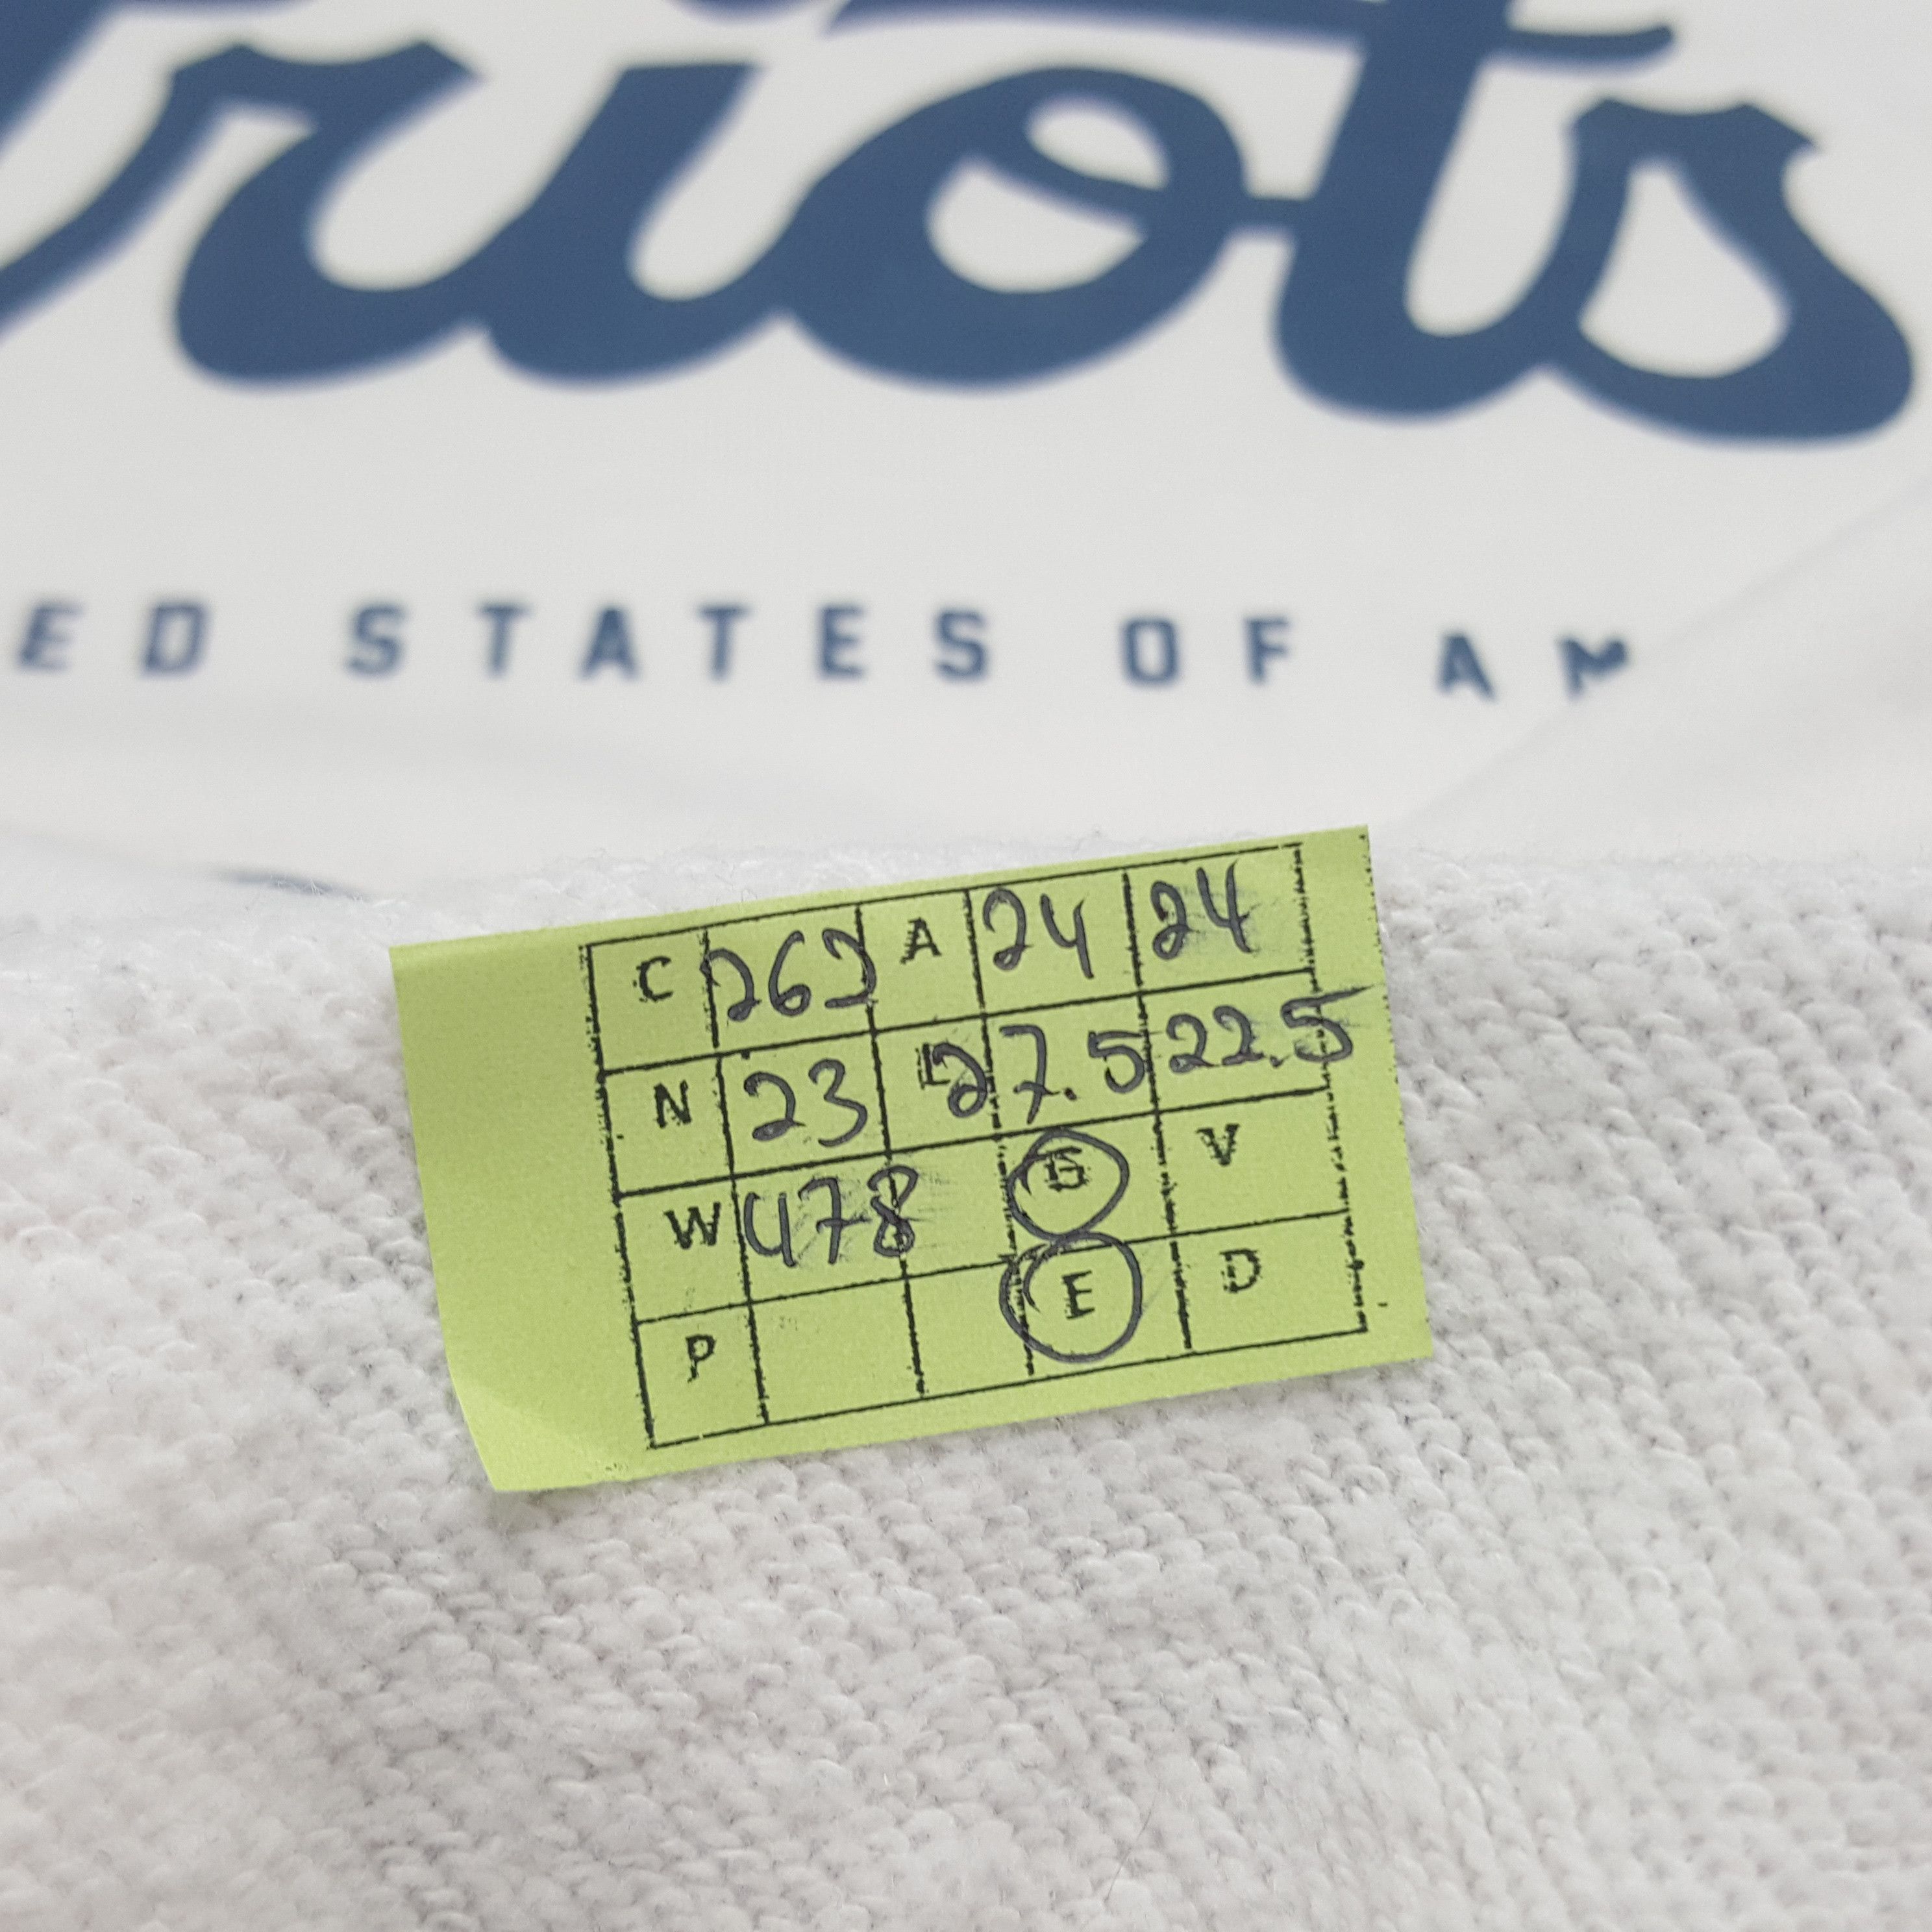 riots
ED STATES OF AM
C 262 A 24 24
N 23 L 27.5 22.5
W 478 G V
P E D